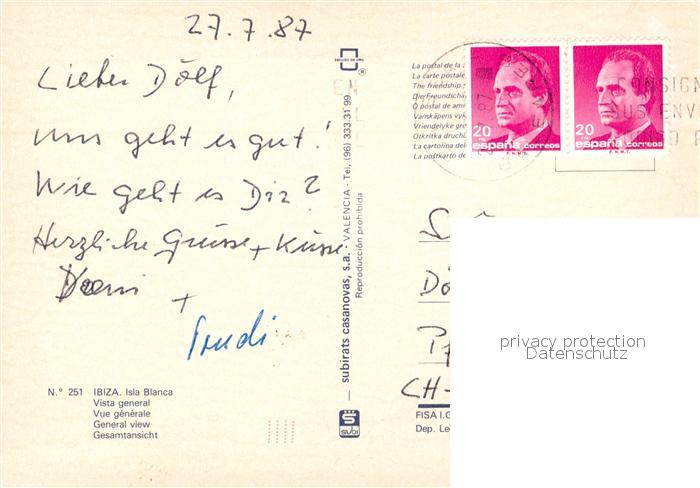 27.7.87
Lieber Dölf,
uns geht es gut!
Wie geht es Dir?
Herzliche Grüsse + Küsse
+
Trudi
N.° 251 IBIZA. Isla Blanca
Vista general
Vue générale
General view
Gesamtansicht
subirats casanovas, s.a. - VALENCIA - Tel. (96) 333 31 99
Reproducción prohibida
ESCUDO DE ORO
®
S
subi
La postal de la
La carte postale
The friendship
Die Freundscha
O postal de am
Vanskapens vyk
Vriendelyke gre
Otkritka druchb
La cartolina del
La postkarto de
20
españa correos
F.N.M.T.
20
españa correos
F.N.M.T.
CONSIGN
SUS ENV
Dö
CH-
FISA I.G
Dep. Le
privacy protection
Datenschutz